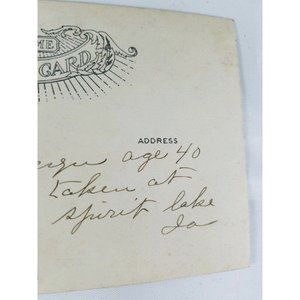 CARD
ADDRESS
age 40
taken at
spirit lake
Ia